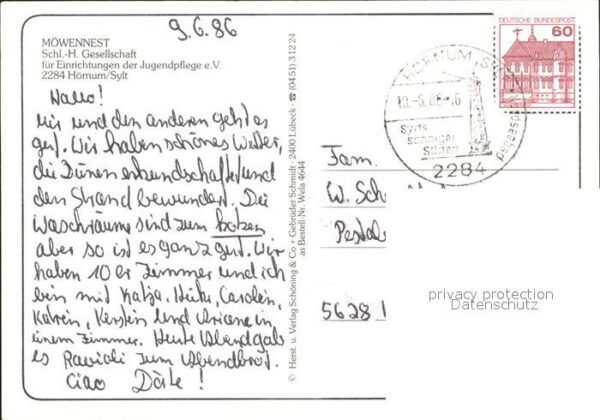 9.6.86
MÖWENNEST
Schl.-H. Gesellschaft
für Einrichtungen der Jugendpflege e.V.
2284 Hörnum/Sylt
Hallo!
Mir und den anderen geht es
gut. Wir haben schönes Wetter,
die Dünen erkundschaftet und
den Strand bewundert. Die
Waschräume sind zum kotzen
aber so ist es ganz gut. Wir
haben 10er Zimmer und ich
bin mit Katja, Heike, Carolin,
Katrin, Kerstin und Ariane in
einem Zimmer. Heute Abend gab
es Ravioli zum Abendbrot.
Ciao Dörte!
© Herst. u. Verlag Schöning & Co + Gebrüder Schmidt · 2400 Lübeck · ☎ (0451) 31224
as Bestell-Nr. Wela 4644
DEUTSCHE BUNDESPOST
60
HÖRNUM, SYLT
10.-6.86-.6
Sylts
sonniger
Süden
2284
Fam.
W. Sch
Pestal
5628
privacy protection
Datenschutz